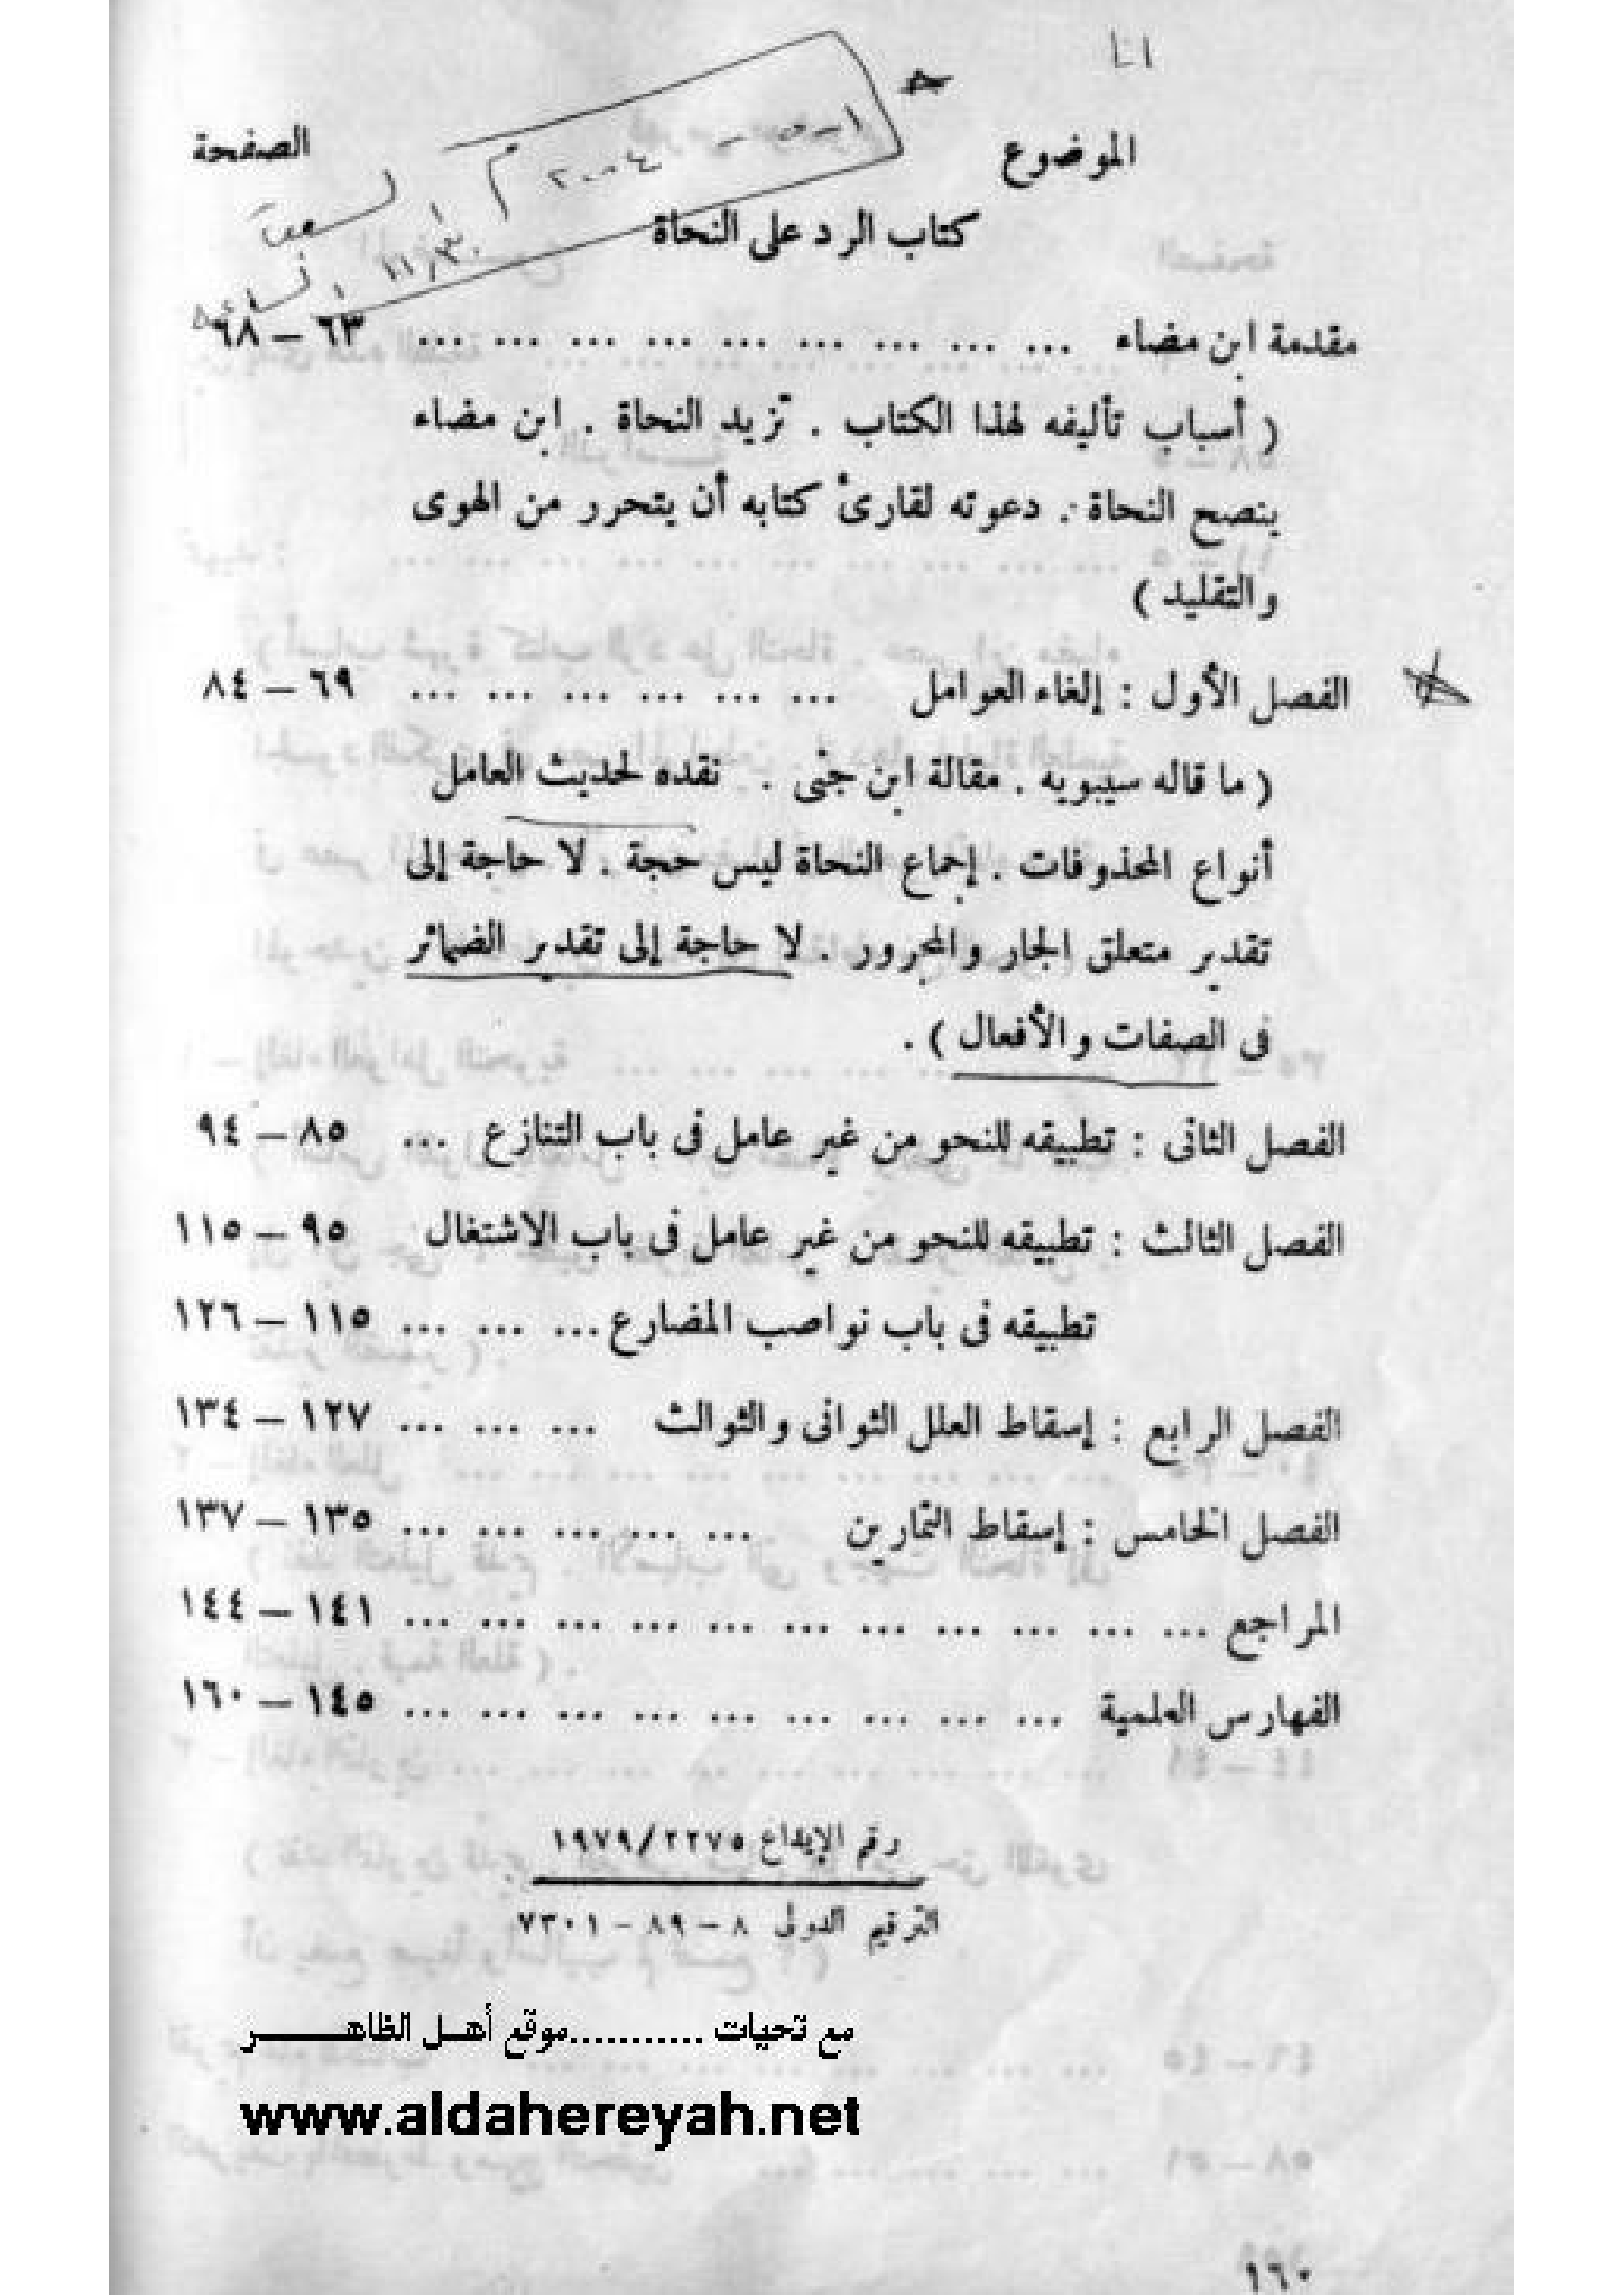 الموضوع الصفحة
كتاب الرد على النحاة
مقدمة ابن مضاء ... ... ... ... ... ... ... ... ... ٦٣ – ٦٨
( أسباب تأليفه لهذا الكتاب . تزيد النحاة . ابن مضاء
ينصح النحاة . دعوته لقارئ كتابه أن يتحرر من الهوى
والتقليد )
الفصل الأول : إلغاء العوامل ... ... ... ... ... ... ٦٩ – ٨٤
( ما قاله سيبويه . مقالة ابن جنى . نقده لحديث العامل
أنواع المحذوفات . إجماع النحاة ليس حجة . لا حاجة إلى
تقدير متعلق الجار والمجرور . لا حاجة إلى تقدير الضمائر
فى الصفات والأفعال ) .
الفصل الثانى : تطبيقه للنحو من غير عامل فى باب التنازع ... ٨٥ – ٩٤
الفصل الثالث : تطبيقه للنحو من غير عامل فى باب الاشتغال ٩٥ – ١١٥
تطبيقه فى باب نواصب المضارع ... ... ... ١١٥ – ١٢٦
الفصل الرابع : إسقاط العلل الثوانى والثوالث ... ... ... ١٢٧ – ١٣٤
الفصل الخامس : إسقاط التمارين ... ... ... ... ... ١٣٥ – ١٣٧
المراجع ... ... ... ... ... ... ... ... ... ... ... ١٤١ – ١٤٤
الفهارس العلمية ... ... ... ... ... ... ... ... ... ١٤٥ – ١٦٠
رقم الإيداع ١٩٧٩/٢٢٧٥
الترقيم الدولى ٨ – ٨٩ – ٧٣٠١
مع تحيات ...........موقع أهـل الظاهـــــــر
www.aldahereyah.net
١٦٠